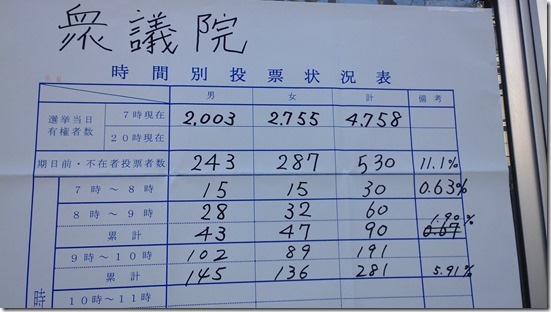 衆議院
時間別投票状況表
男 女 計 備考
選挙当日有権者数 7時現在 2,003 2,755 4,758
20時現在
期日前・不在者投票者数 243 287 530 11.1%
7時～8時 15 15 30 0.63%
8時～9時 28 32 60
累計 43 47 90 1.90%
9時～10時 102 89 191
累計 145 136 281 5.91%
10時～11時
時